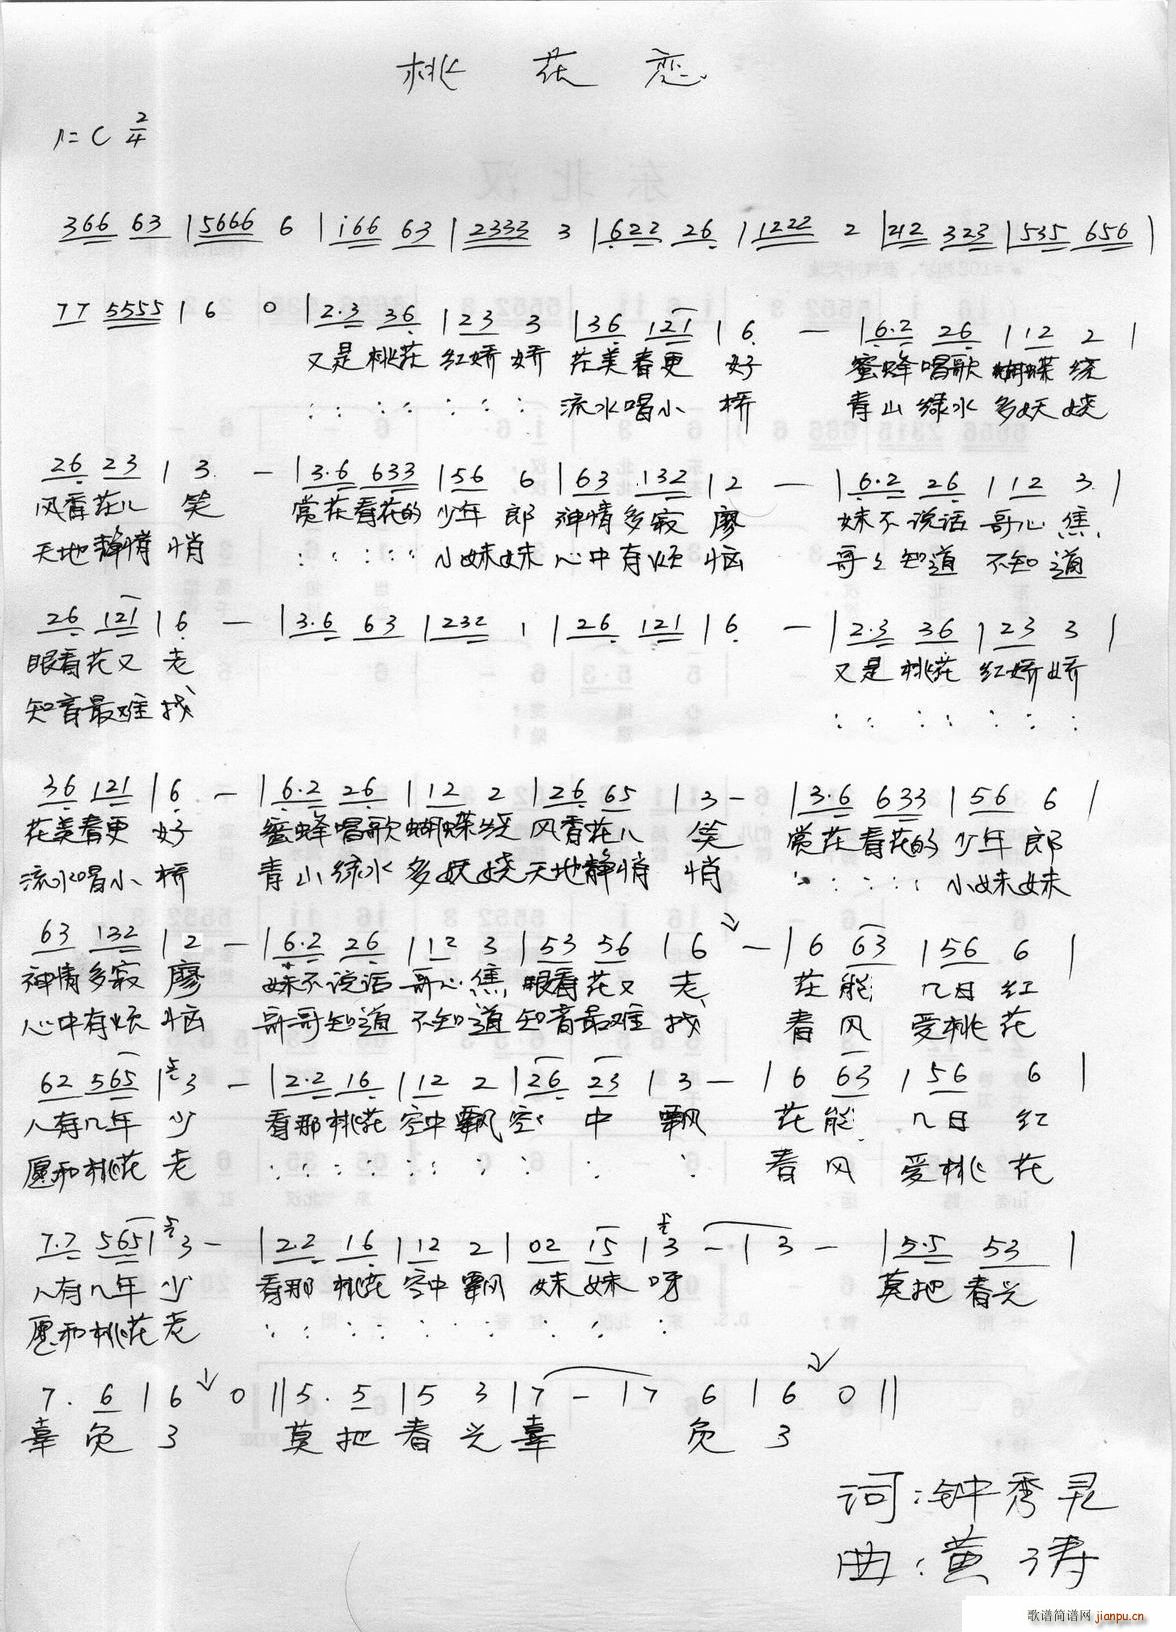 桃花恋
1=C 2/4
366 63 | 5666 6 | i66 63 | 2333 3 | 622 26 | 1222 2 | 212 323 | 535 656 |
77 5555 | 6 0 | 2·3 36 | 23 3 | 36 121 | 6 — | 6·2 26 | 12 2 |
又是桃花 红娇娇 花美春更 好 蜜蜂唱歌 蝴蝶绕
: : : : : : : 流水唱小 桥 青山绿水 多妖娆
26 23 | 3 — | 3·6 633 | 56 6 | 63 132 | 2 — | 6·2 26 | 12 3 |
风香花儿 笑 赏花看花的 少年郎 神情多寂 廖 妹不说话 哥心焦
天地静悄 悄 : : : : : 小妹妹 心中有烦 恼 哥々知道 不知道
26 121 | 6 — | 3·6 63 | 232 1 | 26 121 | 6 — | 2·3 36 | 23 3 |
眼看花又 老 又是桃花 红娇娇
知音最难 找 : : : : : : :
36 121 | 6 — | 6·2 26 | 12 2 | 26 65 | 3 — | 3·6 633 | 56 6 |
花美春更 好 蜜蜂唱歌 蝴蝶绕 风香花儿 笑 赏花看花的 少年郎
流水唱小 桥 青山绿水 多妖娆 天地静悄 悄 : : : : : 小妹妹
63 132 | 2 — | 6·2 26 | 12 3 | 53 56 | 6 — | 6 63 | 56 6 |
神情多寂 廖 妹不说话 哥心焦 眼看花又 老 花能 几日 红
心中有烦 恼 哥哥知道 不知道 知音最难 找 春风 爱桃花
62 565 | 3 — | 2·2 16 | 12 2 | 26 23 | 3 — | 6 63 | 56 6 |
人有几年 少 看那桃花 空中飘 空 中 飘 花能 几日 红
愿和桃花 老 : : : : : : : : : : 春风 爱桃花
7·7 565 | 3 — | 2·2 16 | 12 2 | 02 15 | 3 — | 3 — | 5·5 53 |
人有几年 少 看那桃花 空中飘 妹妹呀 莫把春光
愿和桃花 老 : : : : : : : : : :
7· 6 | 6 0 || 5· 5 | 5 3 | 7 — | 7 6 | 6 0 ||
辜负了 莫把春光辜 负了
词:钟秀灵
曲:黄涛
歌谱简谱网 jianpu.cn